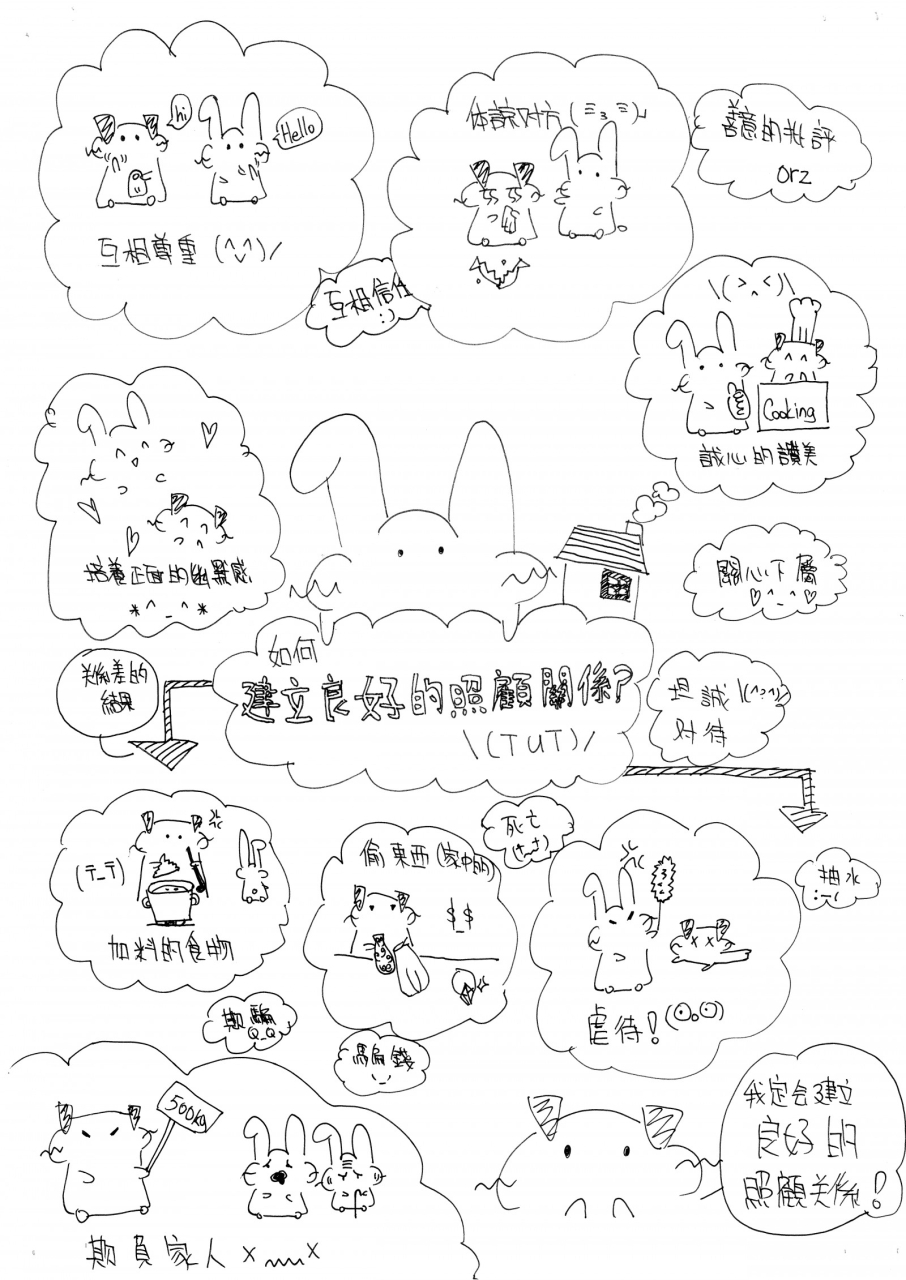 hi
Hello
互相尊重 (^ᴗ^)/
体諒对方 (ΞₒΞ)
善意的批評
orz
互相信任
:)
\(>^<)/
Cooking
誠心的讚美
培養正面的幽默感
*^_^*
關心下屬
♡^_^♡
如何
建立良好的照顧關係?
\(TUT)/
关係差的
結果
坦誠 \(^o^)/
对待
(T_T)
加料的食物
偷東西(家中的)
$_$
死亡
(+_+)
虐待! (⊙o⊙)
抽水
:-(
欺騙
Q_Q
騙錢
-_-
500kg
欺負家人 x﹏x
我定会建立
良好的
照顧关係!